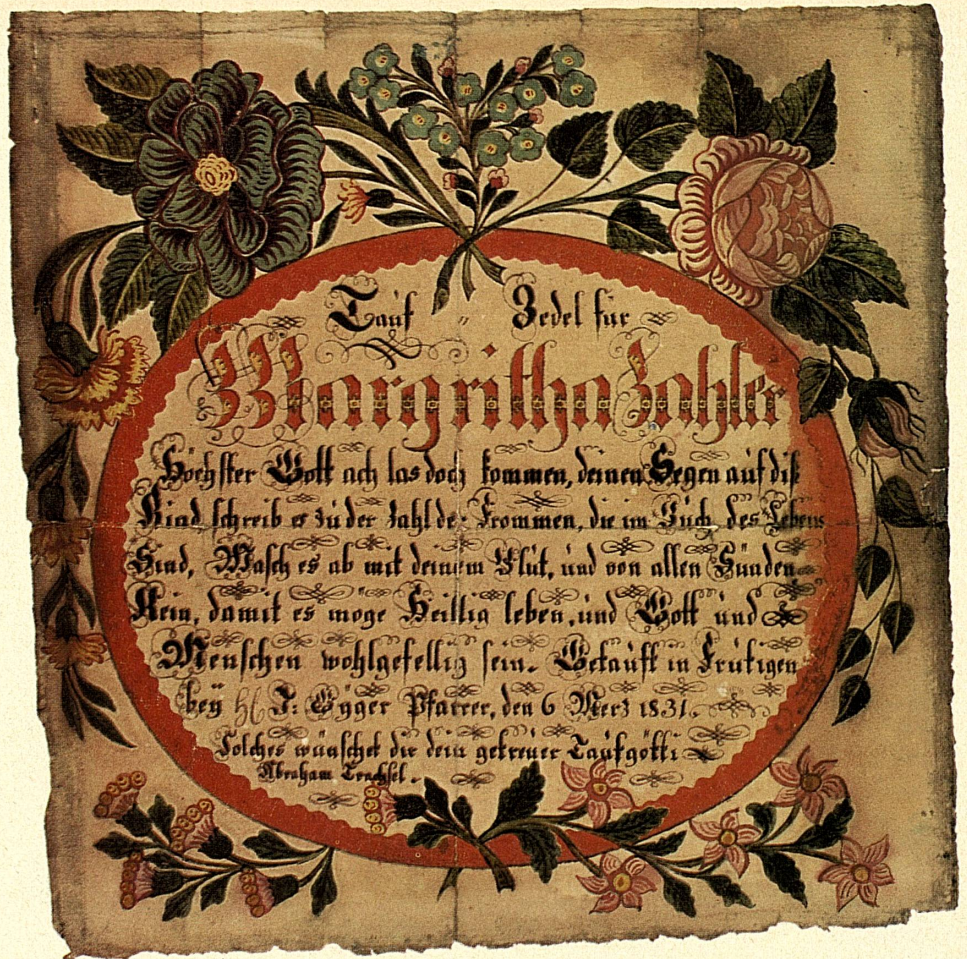 Tauf Zedel für
Margritha Zahler
Höchster Gott ach las doch kommen, deinen Segen auf diß
Kind schreib es zu der Zahl der Frommen, die im Buch des Lebens
Sind, Wasch es ab mit deinem Blut, und von allen Sünden
Rein, damit es möge Heillig leben, und Gott und
Menschen wohlgefellig sein. Getauft in Frutigen
bey J: Gÿger Pfarrer, den 6 Merz 1831.
Solches wünschet dir dein getreuer Taufgötti
Abraham Trachsel.